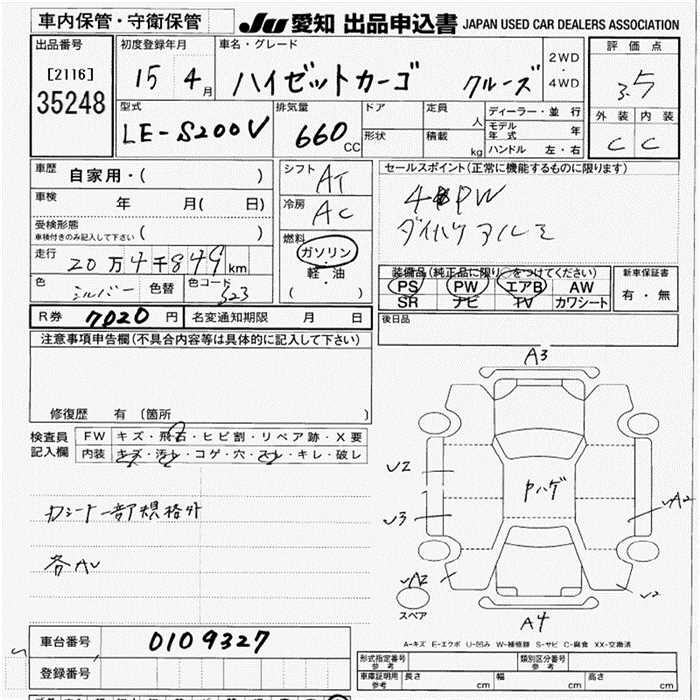 車内保管・守衛保管
JU 愛知 出品申込書 JAPAN USED CAR DEALERS ASSOCIATION
出品番号
[2116]
35248
初度登録年月
15 4月
車名・グレード
ハイゼットカーゴ クルーズ
2WD
・
4WD
評価点
3.5
外装 内装
C C
型式
LE-S200V
排気量
660 CC
ドア
形状
定員 人
積載 kg
ディーラー・並行
モデル年式 年
ハンドル 左・右
車歴 自家用・( )
車検 年 月( 日)
受検形態
車検付きのみ記入して下さい ( )
走行 20万4千849km
色 シルバー 色替 色コード S23
シフト AT
冷房 AC
燃料
ガソリン
軽・油
( )
セールスポイント(正常に機能するものに限ります)
4 PW
ダイハツアルミ
装備品(純正品に限り○をつけてください)
PS PW エアB AW
SR ナビ TV カワシート
新車保証書
有・無
R券 7020 円 名変通知期限 月 日
後日品
注意事項申告欄(不具合内容等は具体的に記入して下さい)
修復歴 有 〔箇所 〕
検査員
記入欄
FW キズ・飛石・ヒビ割・リペア跡・X要
内装 キズ・汚れ・コゲ・穴・スレ・キレ・破レ
カシート一部規格外
各AU
A3
U2
U3
Pハゲ
A2
A2
U2
A4
スペア
A-キズ E-エクボ U-凹み W-補修跡 S-サビ C-腐食 XX-交換済
車台番号 0109327
登録番号
形式指定番号
参考
類別区分番号
参考
車庫証明用
参考
長さ cm 幅 cm 高さ cm